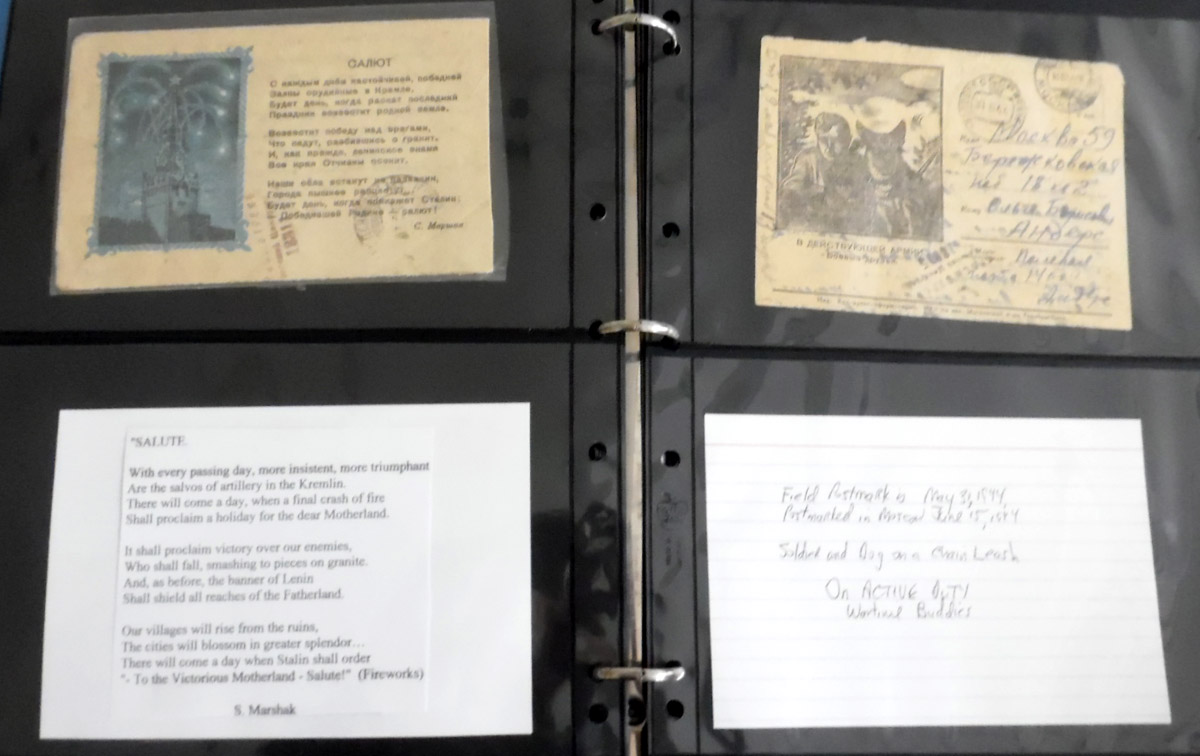 САЛЮТ
С каждым днём настойчивей, победней
Залпы орудийные в Кремле.
Будет день, когда раскат последний
Праздник возвестит родной земле.
Возвестит победу над врагами,
Что падут, разбившись о гранит,
И, как прежде, ленинское знамя
Все края Отчизны осенит.
Наши сёла встанут из развалин,
Города пышнее расцветут.
Будет день, когда прикажет Сталин:
- Победившей Родине - салют!
С. Маршак
Москва 59
Бережковская
наб 18
Ольге Борисовне
В ДЕЙСТВУЮЩЕЙ АРМИИ
Полевая
почта
"SALUTE
With every passing day, more insistent, more triumphant
Are the salvos of artillery in the Kremlin.
There will come a day, when a final crash of fire
Shall proclaim a holiday for the dear Motherland.
It shall proclaim victory over our enemies,
Who shall fall, smashing to pieces on granite.
And, as before, the banner of Lenin
Shall shield all reaches of the Fatherland.
Our villages will rise from the ruins,
The cities will blossom in greater splendor…
There will come a day when Stalin shall order
"- To the Victorious Motherland - Salute!" (Fireworks)
S. Marshak
Field Postmark is May 31, 1944,
Postmarked in Moscow June 15, 1944
Soldier and Dog on a Chain Leash
On ACTIVE DUTY
Wartime Buddies